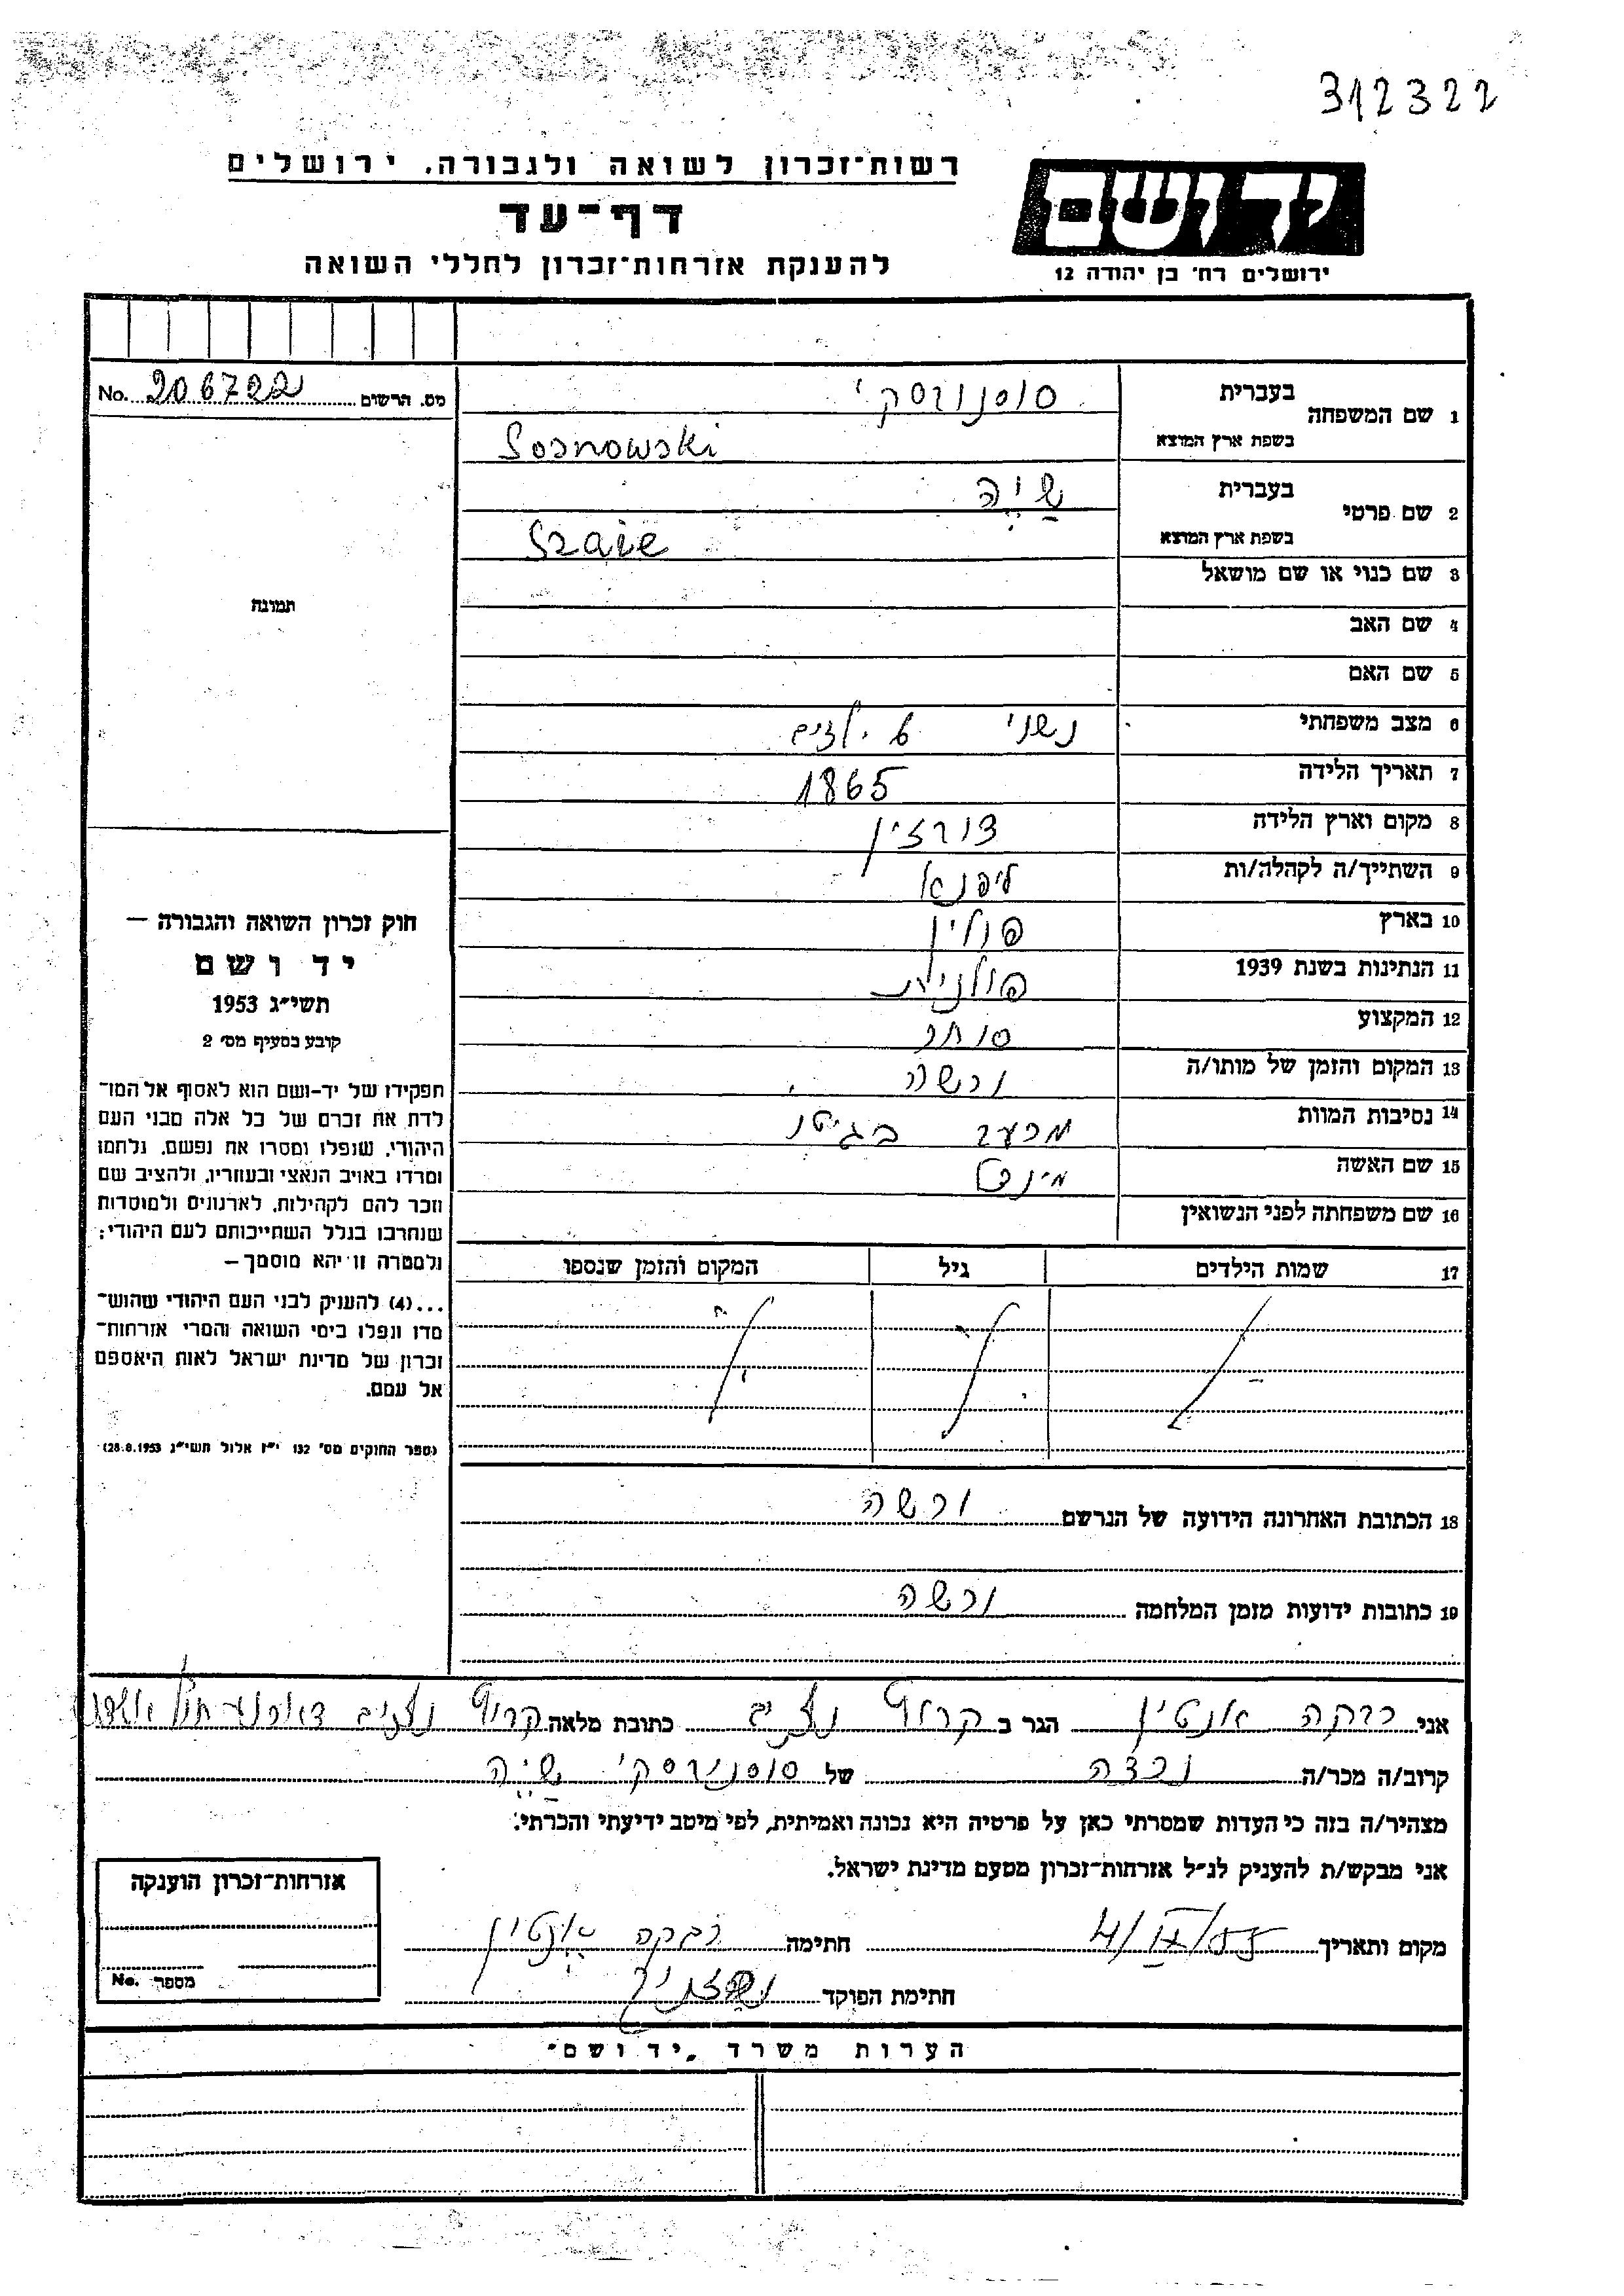 312322
יד ושם
ירושלים רח׳ בן יהודה 12
רשות־זכרון לשואה ולגבורה, ירושלים
דף־עד
להענקת אזרחות־זכרון לחללי השואה
מס. הרשום 206722 No.
1 שם המשפחה בעברית סוסנורסקי
בשפת ארץ המוצא Sosnowski
2 שם פרטי בעברית שַיֶיה
בשפת ארץ המוצא Szaie
3 שם כנוי או שם מושאל
4 שם האב
5 שם האם
6 מצב משפחתי נשוי 6 ילדים
7 תאריך הלידה 1865
8 מקום וארץ הלידה
9 השתייך/ה לקהלה/ות ליפנא
10 בארץ פולין
11 הנתינות בשנת 1939 פולנית
12 המקצוע סוחר
13 המקום והזמן של מותו/ה ורשה
14 נסיבות המוות מרעב בגיטו
15 שם האשה
16 שם משפחתה לפני הנשואין
17 שמות הילדים גיל המקום והזמן שנספו
18 הכתובת האחרונה הידועה של הנרשם ורשה
19 כתובות ידועות מזמן המלחמה ורשה
תמונה
חוק זכרון השואה והגבורה —
יד ושם
תשי״ג 1953
קובע בסעיף מס׳ 2
תפקידו של יד-ושם הוא לאסוף אל המו־
לדת את זכרם של כל אלה מבני העם
היהודי, שנפלו ומסרו את נפשם, נלחמו
ומרדו באויב הנאצי ובעוזריו, ולהציב שם
וזכר להם לקהילות, לארגונים ולמוסדות
שנחרבו בגלל השתייכותם לעם היהודי;
ולמטרה זו יהא מוסמך —
...(4) להעניק לבני העם היהודי שהוש־
מדו ונפלו בימי השואה והמרי אזרחות־
זכרון של מדינת ישראל לאות היאספם
אל עמם.
(ספר החוקים מס׳ 132 י״ז אלול תשי״ג 28.8.1953)
אני רבקה אנטין הגר ב כתובת מלאה
קרוב/ה מכר/ה נכדה של סוסנורסקי שַיֶיה
מצהיר/ה בזה כי העדות שמסרתי כאן על פרטיה היא נכונה ואמיתית, לפי מיטב ידיעתי והכרתי.
אני מבקש/ת להעניק לנ״ל אזרחות־זכרון מטעם מדינת ישראל.
מקום ותאריך 4/IX/55 חתימה רבקה אנטין
חתימת הפוקד
אזרחות־זכרון הוענקה
מספר No.
הערות משרד „יד ושם״